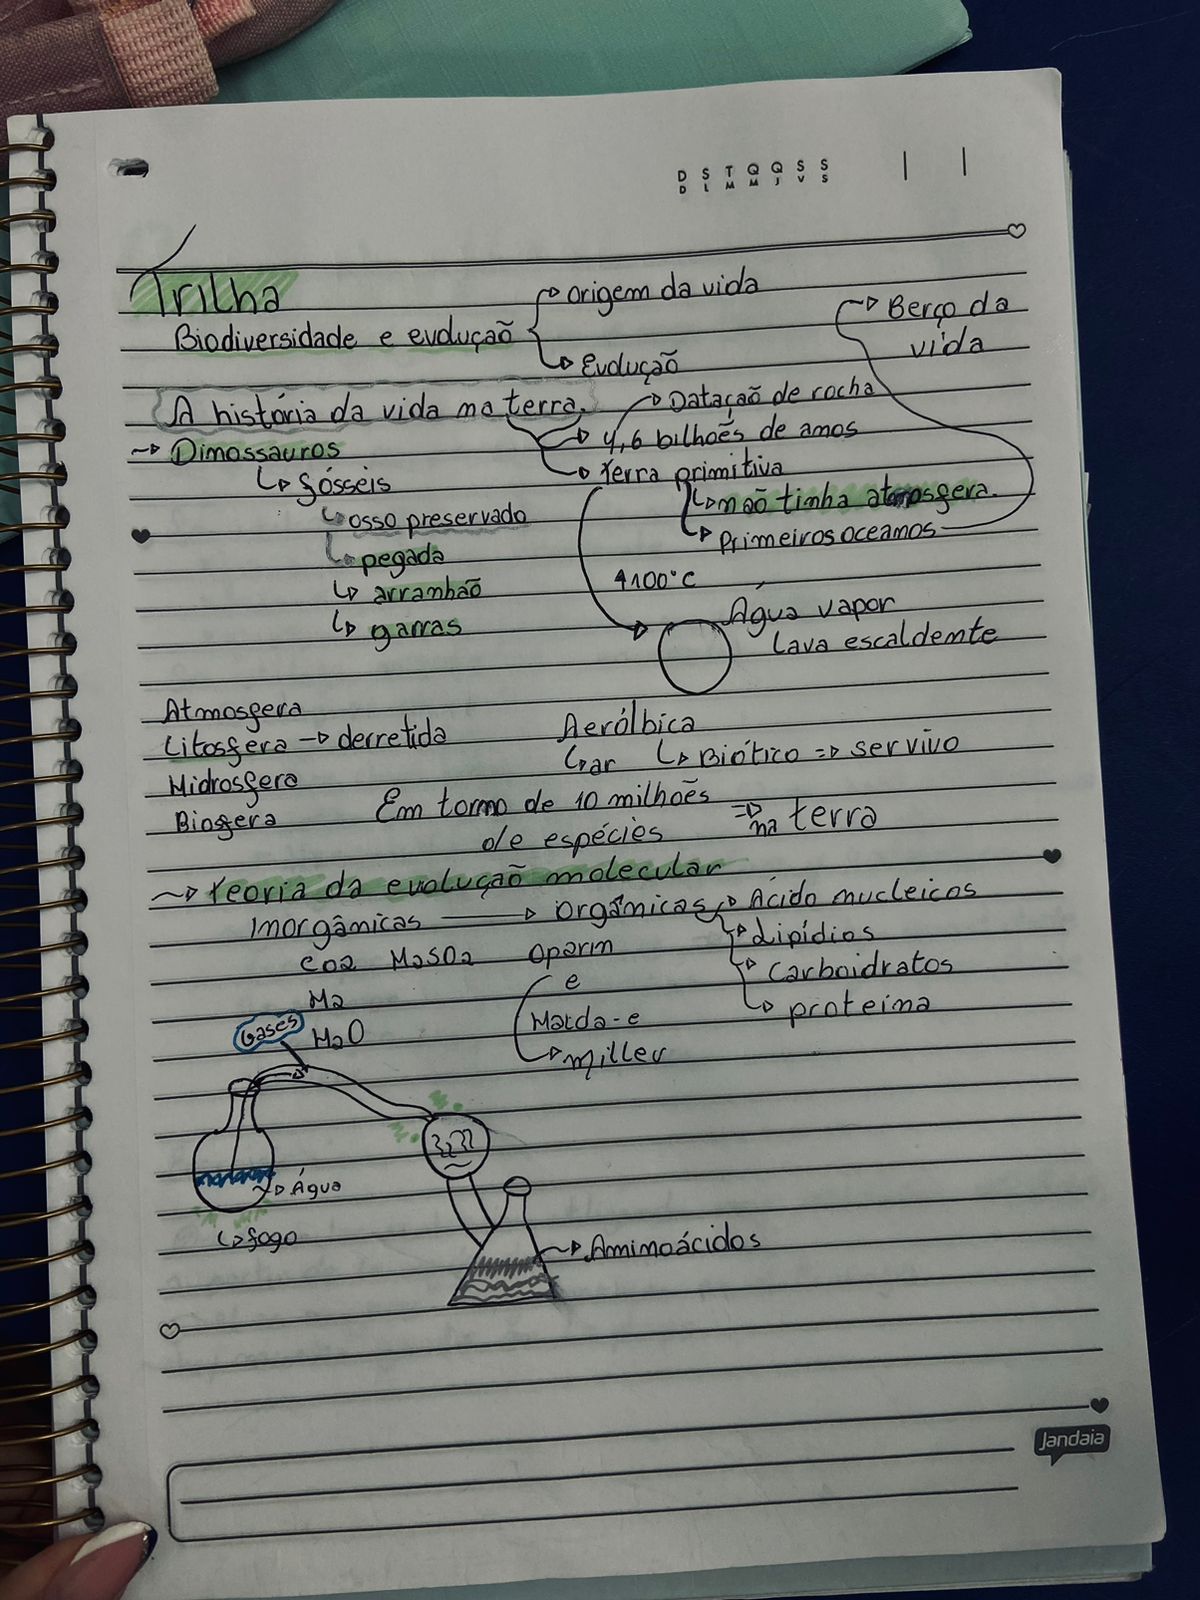 D S T Q Q S S
D L M M J V S
Trilha
Biodiversidade e evolução
origem da vida
Evolução
Berço da
vida
A história da vida na terra.
Datação de rocha
4,6 bilhões de anos
terra primitiva
não tinha atmosfera.
Primeiros oceanos
Dinossauros
fósseis
osso preservado
pegada
arranhão
garras
1100°C
Água vapor
Lava escaldente
Atmosfera
Litosfera → derretida
Hidrosfera
Biosfera
Aerólbica
ar
Biótico => ser vivo
Em torno de 10 milhões
de espécies
=> na terra
Teoria da evolução molecular
Inorgânicas → orgânicas
Ácido nucleicos
Lipídios
Carboidratos
proteina
CO2 H2SO2
H2
H2O
Oparin
e
Halda-e
miller
Gases
Água
fogo
Aminoácidos
Jandaia